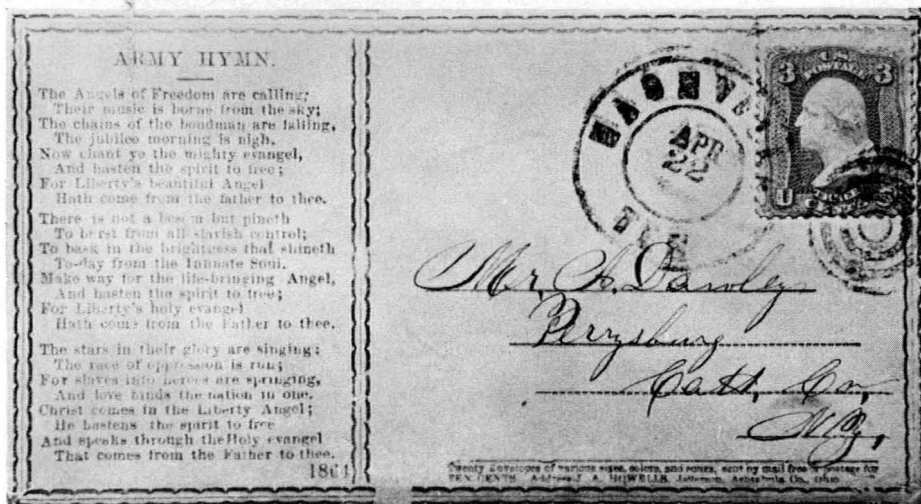 ARMY HYMN.
The Angels of Freedom are calling;
Their music is borne from the sky;
The chains of the bondman are falling,
The jubilee morning is nigh.
Now chant ye the mighty evangel,
And hasten the spirit to free;
For Liberty's beautiful Angel
Hath come from the father to thee.
There is not a bosom but pineth
To burst from all slavish control;
To bask in the brightness that shineth
To-day from the Infinate Soul.
Make way for the life-bringing Angel,
And hasten the spirit to free;
For Liberty's holy evangel
Hath come from the Father to thee.
The stars in their glory are singing:
The race of oppression is run;
For slaves into heroes are springing,
And love binds the nation in one.
Christ comes in the Liberty Angel;
He hastens the spirit to free
And speaks through the Holy evangel
That comes from the Father to thee.
1864
NASHVILLE
APR
22
TEN
U.S.
POSTAGE
3 3
U
Mr, A. Dawley
Perrysburg
Catt, Co,
N.Y,
Twenty Envelopes of various sizes, colors, and songs, sent by mail free of postage for
TEN CENTS. Address J. A. HOWELLS, Jefferson, Ashtabula Co., Ohio